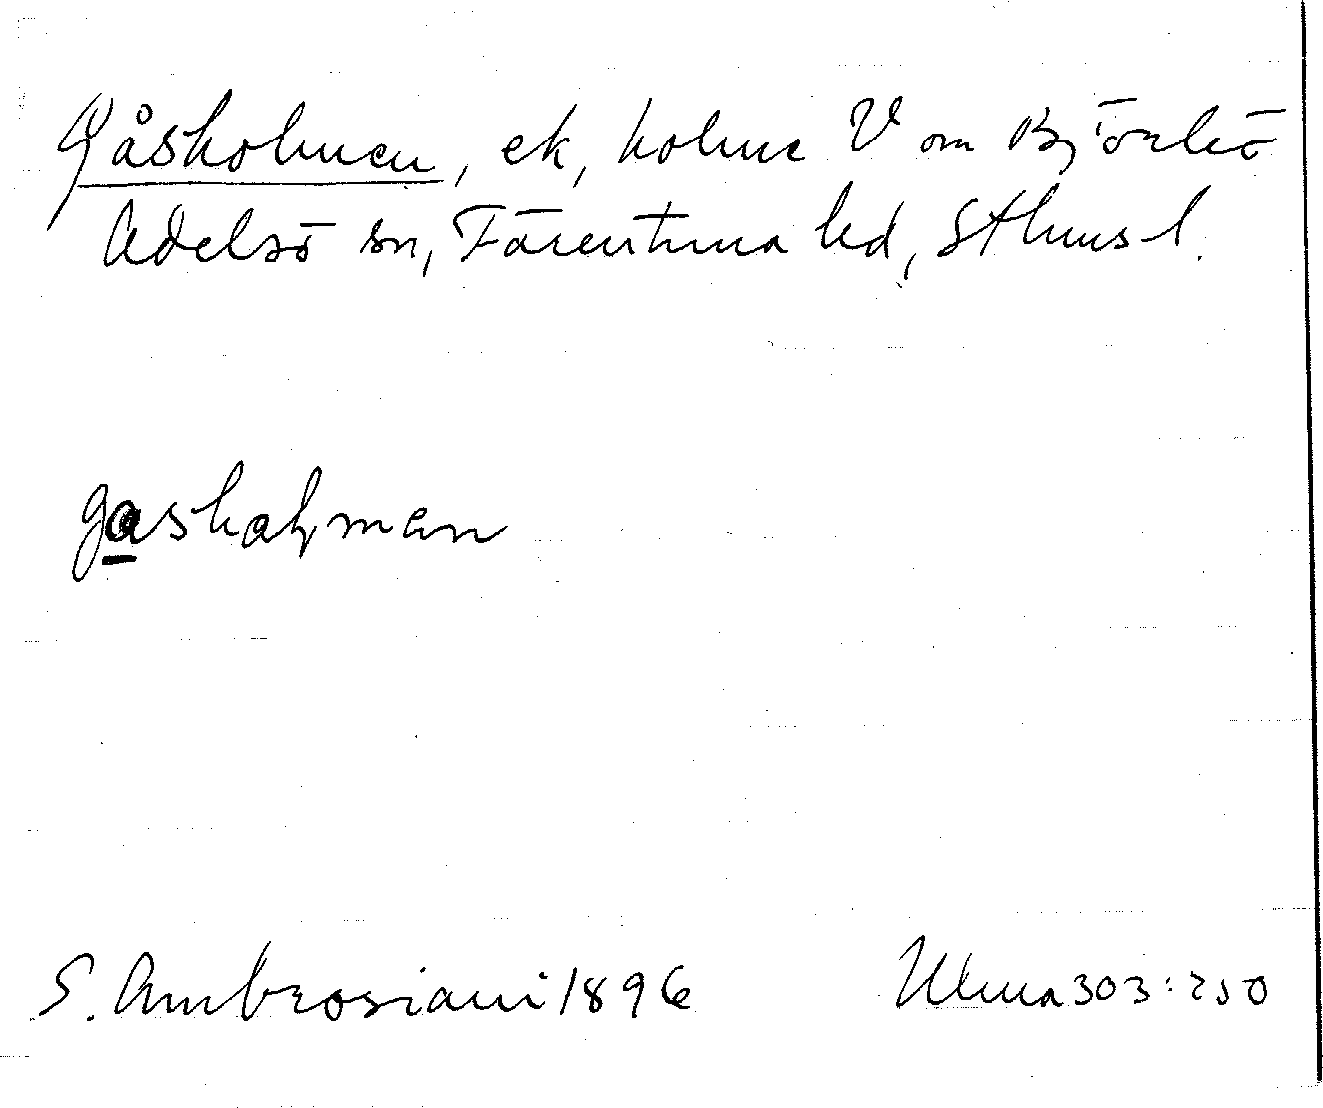 Gåsholmen, ek, holme V om Björkö
Adelsö sn, Färentuna hd, Sthms l.
gashalman
S. Ambrosiani 1896 Ulma 303:250